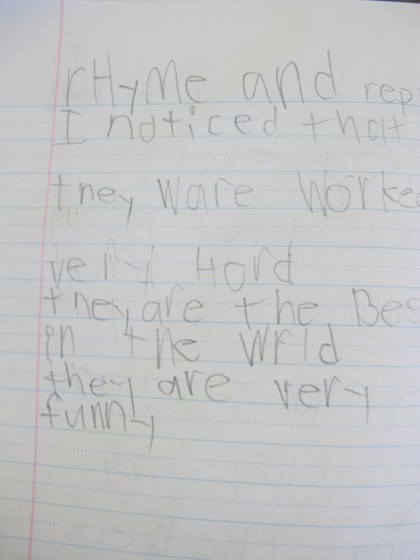 rHyMe and rep
I noticed that
they ware worke
very Hard
they are the Bes
in the wrld
they are very
funny